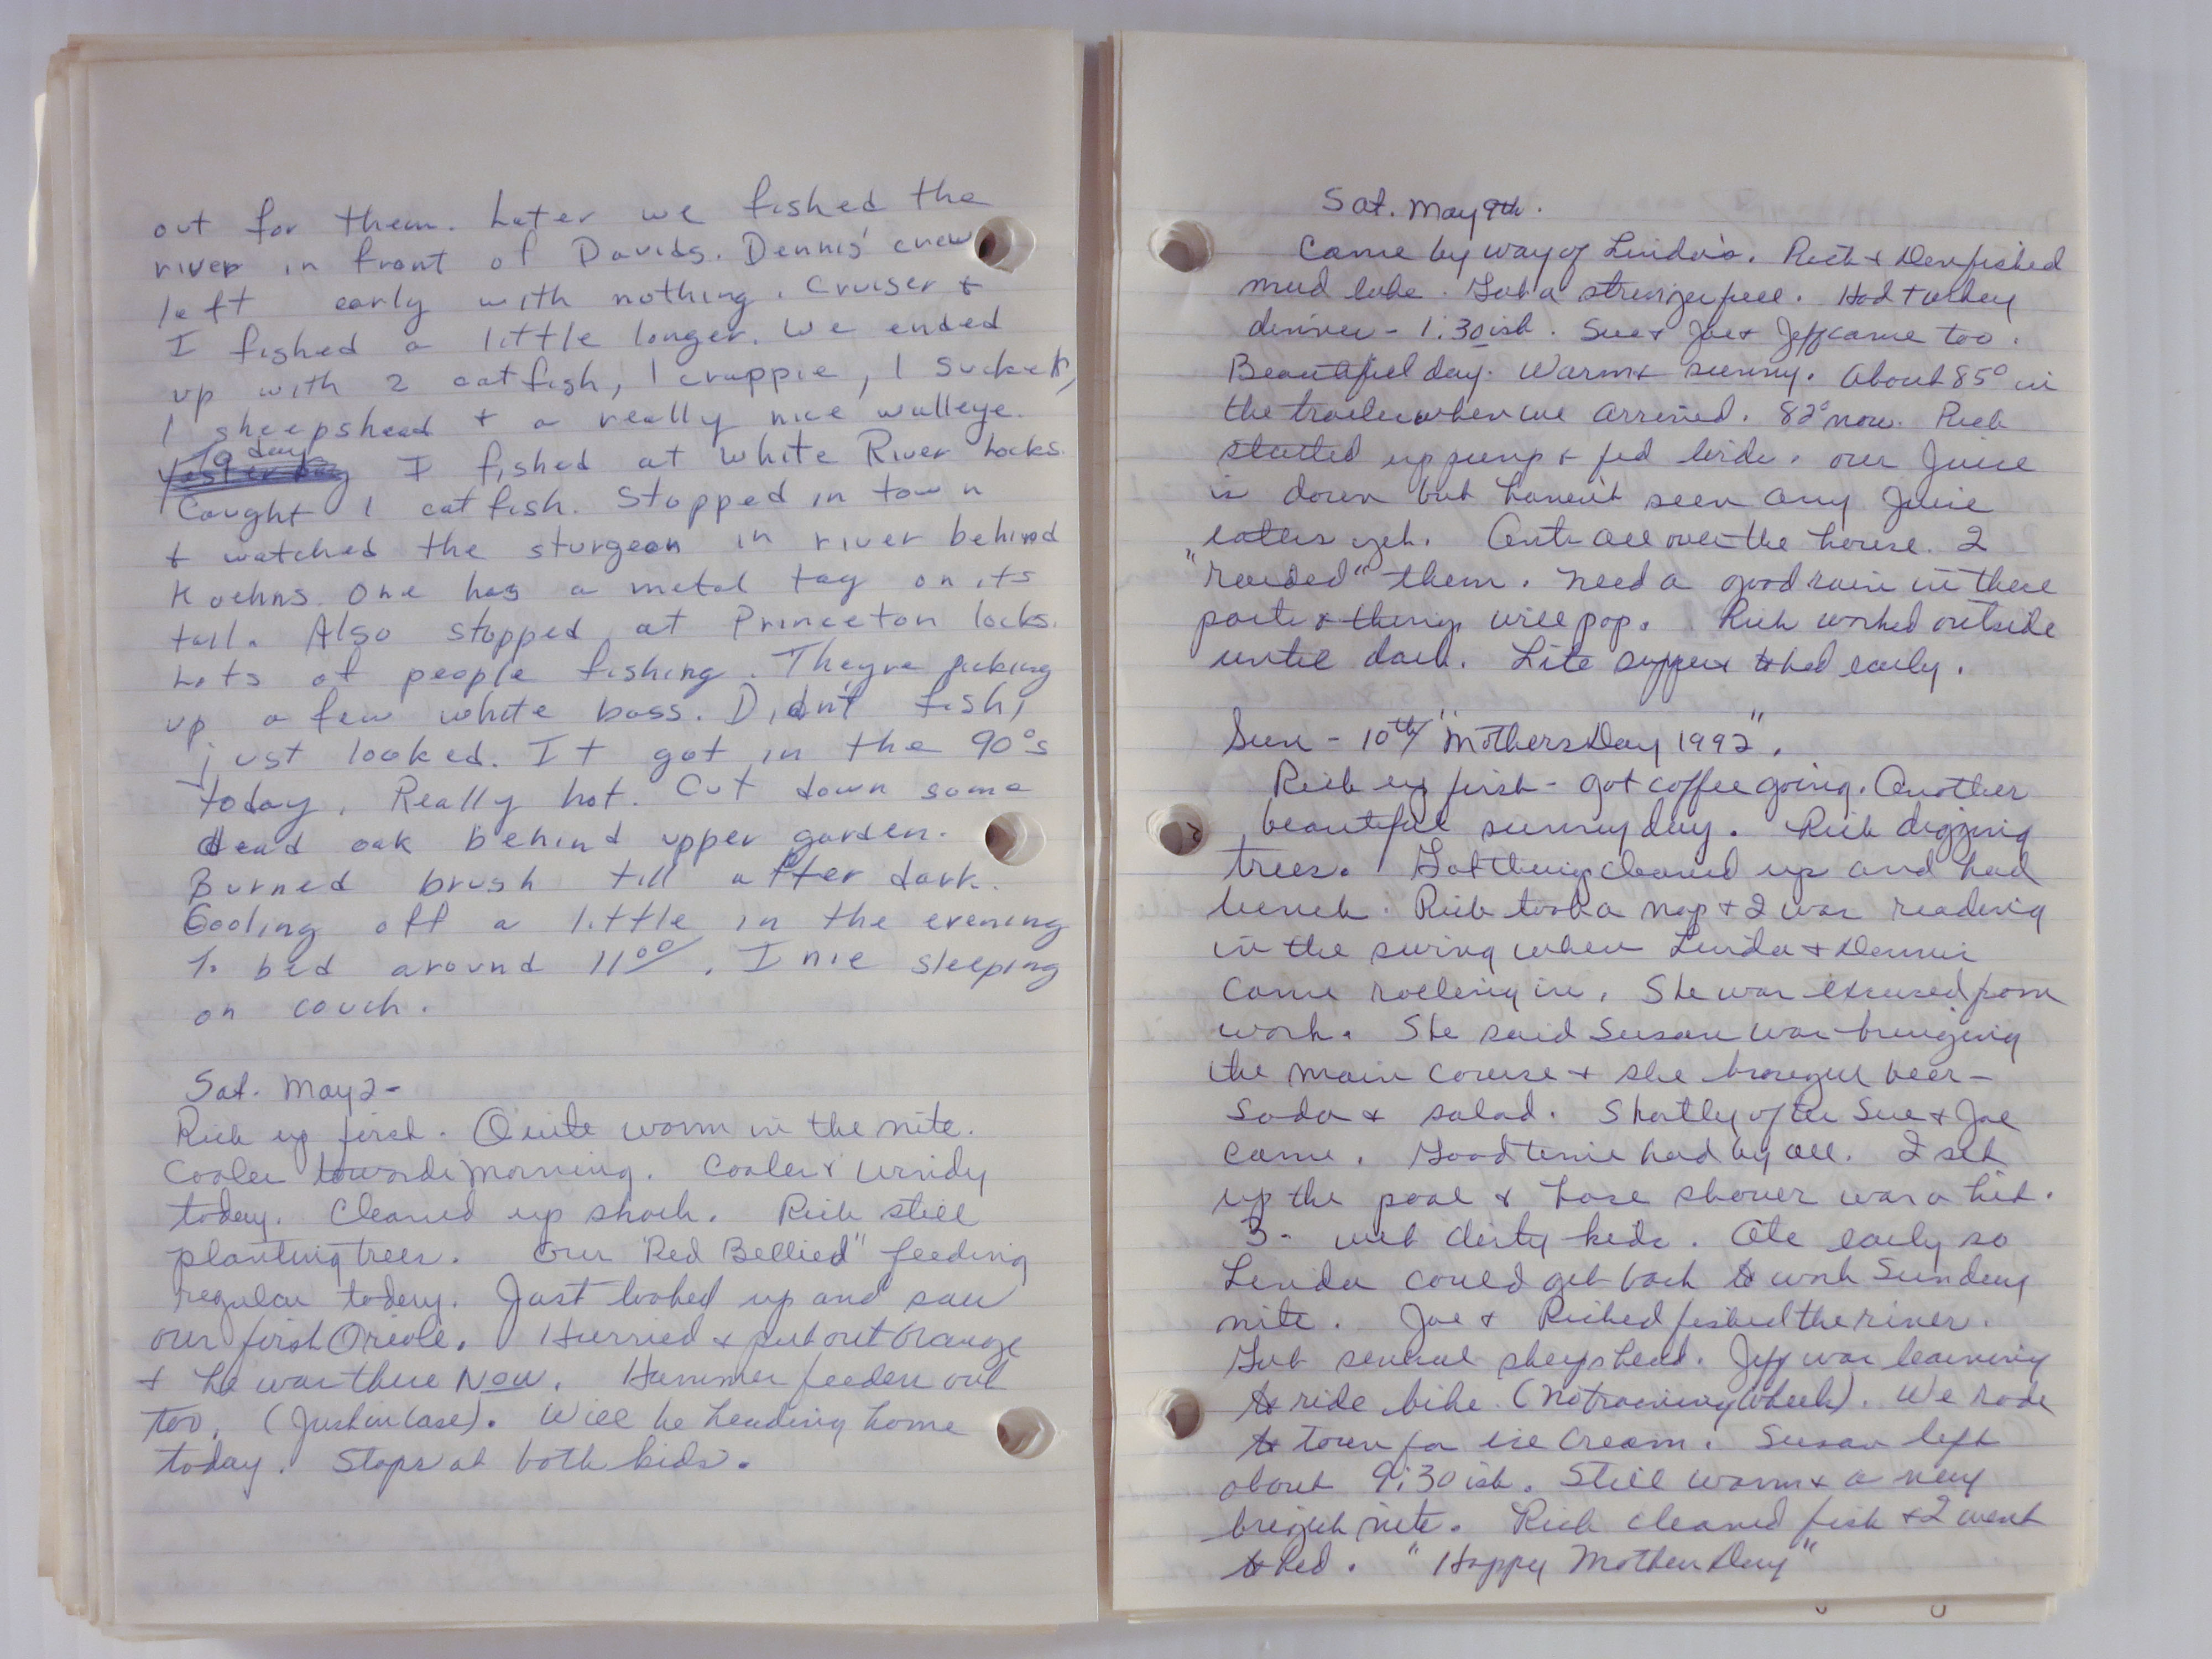 out for them. Later we fished the
river in front of Davids. Dennis' crew
left early with nothing. Cruiser +
I fished a little longer. We ended
up with 2 catfish, 1 crappie, 1 sucker,
1 sheepshead + a really nice walleye.
Today I fished at White River Locks.
Caught 1 catfish. Stopped in town
+ watched the sturgeon in river behind
Koehns. One has a metal tag on its
tail. Also stopped at Princeton locks.
Lots of people fishing. Theyre picking
up a few white bass. Didn't fish,
just looked. It got in the 90°s
today. Really hot. Cut down some
dead oak behind upper garden.
Burned brush till after dark.
Cooling off a little in the evening
To bed around 11:00. Inie sleeping
on couch.
Sat. May 2-
Rich up first. Quite warm in the nite.
Cooler towards morning. Cooler + windy
today. Cleaned up shack. Rich still
planting trees. Our "Red Bellied" feeding
regular today. Just looked up and saw
our first Oriole. Hurried + put out orange
+ he was there Now. Hummer feeders out
too. (Just in case). Will be heading home
today. Stops at both kids.
Sat. May 9th.
Came by way of Linda's. Rich + Den fished
mud lake. Got a stringer full. Had turkey
dinner - 1:30 ish. Sue + Joe + Jeff came too.
Beautiful day. Warm + sunny. About 85° in
the trailer when we arrived. 82° now. Rich
started up pump + fed birds. our Juice
is down but haven't seen any Juice
eaters yet. Ants all over the house. I
"raided" them. Need a good rain in these
parts + things will pop. Rich worked outside
until dark. Lite supper + to bed early.
Sun - 10th "Mothers Day 1992".
Rich up first - got coffee going. Another
beautiful sunny day. Rich digging
trees. Got things cleaned up and had
lunch. Rich took a nap + I was reading
in the swing when Linda + Dennis
came rolling in. She was excused from
work. She said Susan was bringing
the main course + she brought beer -
Soda + salad. Shortly after Sue + Joe
came. Good time had by all. I set
up the pool + hose shower was a hit.
3 - wet dirty kids. Ate early so
Linda could get back to work Sunday
nite. Joe + Riched fished the river.
Got several sheepshead. Jeff was learning
to ride bike. (No training wheels). We rode
to town for ice cream. Susan left
about 9:30 ish. Still warm + a very
bright nite. Rich cleaned fish + I went
to bed. "Happy Mothers Day"